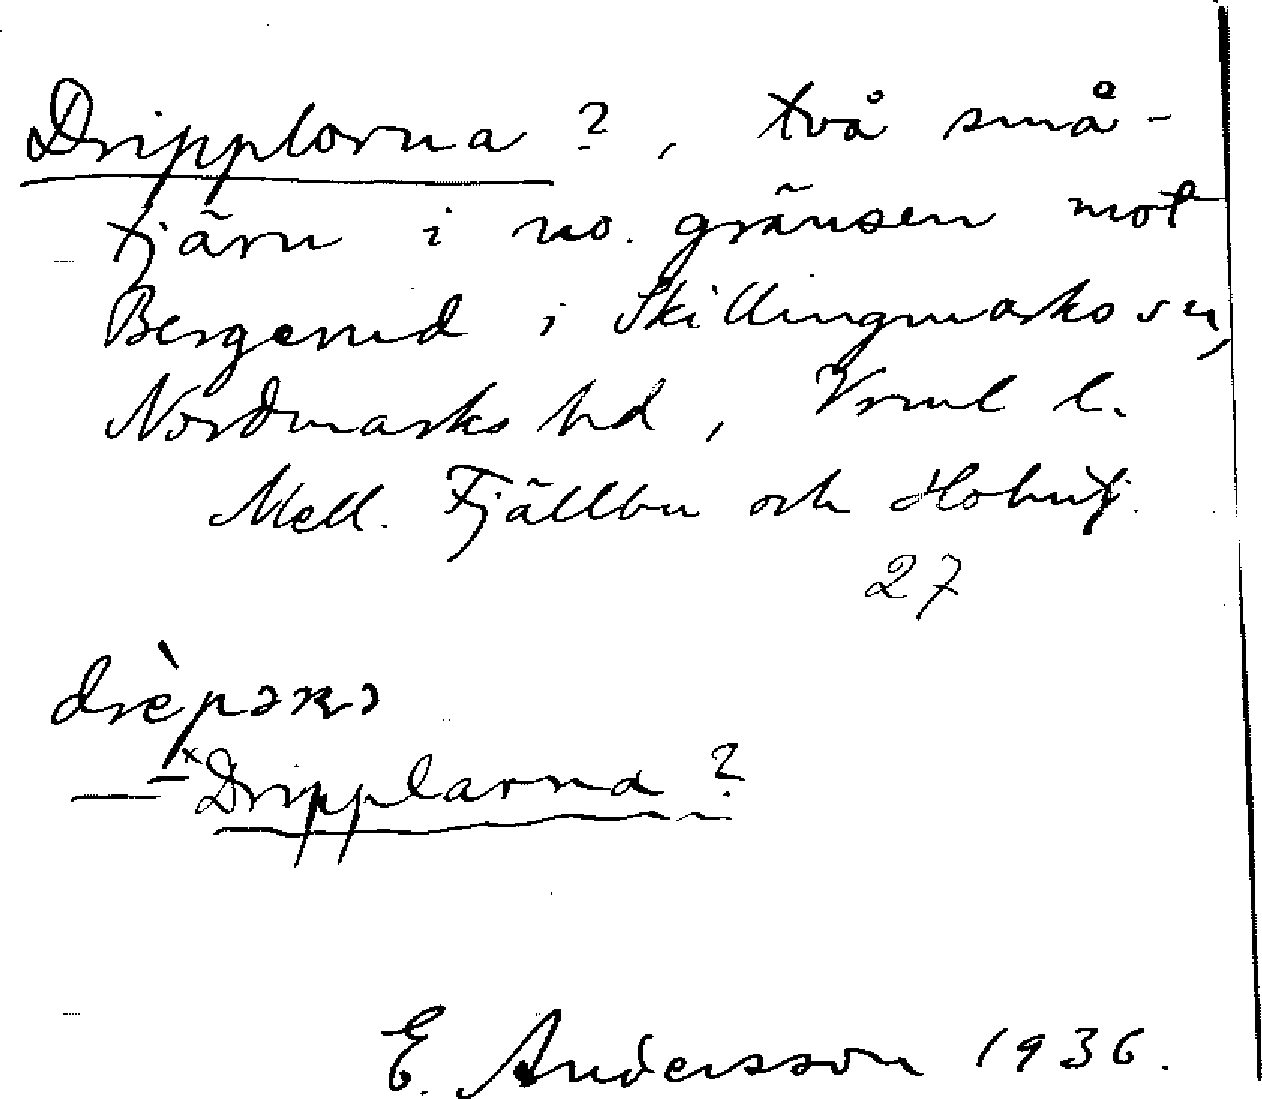 Dripplorna ?, två små-
tjärn i no. gränsen mot
Bergerud i Skillingmarks sn,
Nordmarks hd, Vrml l.
Mell. Fjällbu och
27
drèpəɴə
— *Dripplarna ?
E. Andersson 1936.